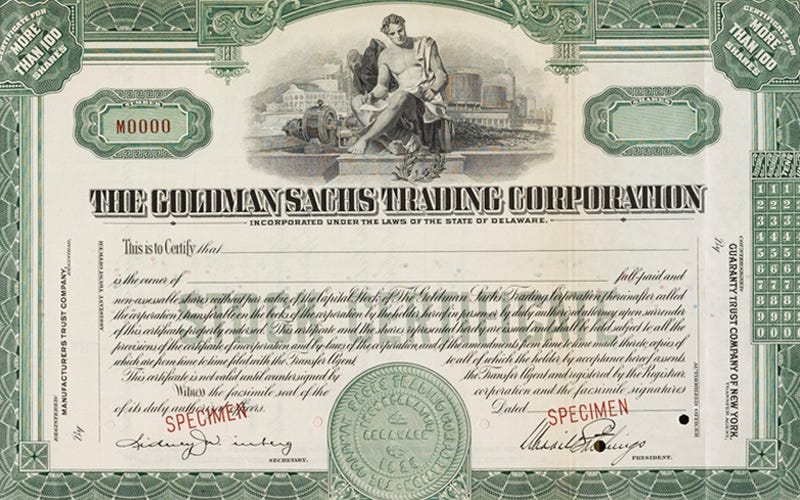 CERTIFICATE FOR
MORE
THAN 100
SHARES
CERTIFICATE FOR
MORE
THAN 100
SHARES
NUMBER
M0000
SHARES
THE GOLDMAN SACHS TRADING CORPORATION
INCORPORATED UNDER THE LAWS OF THE STATE OF DELAWARE.
This is to Certify that
is the owner of
full-paid and
non-assessable shares without par value of the Capital Stock of The Goldman Sachs Trading Corporation (hereinafter called
the corporation), transferable on the books of the corporation by the holder hereof in person or by duly authorized attorney upon surrender
of this certificate properly endorsed. This certificate and the shares represented hereby are issued and shall be held subject to all the
provisions of the certificate of incorporation and by-laws of the corporation, and of the amendments from time to time made thereto, copies of
which are from time to time filed with the Transfer Agent
to all of which the holder by acceptance hereof assents.
This certificate is not valid until countersigned by
the Transfer Agent and registered by the Registrar.
Witness the facsimile seal of the
corporation and the facsimile signatures
of its duly authorized officers.
Dated
SPECIMEN
SPECIMEN
SECRETARY.
PRESIDENT.
DELAWARE
REGISTERED:
MANUFACTURERS TRUST COMPANY,
REGISTRAR,
By
ASSISTANT TRUST OFFICER
COUNTERSIGNED:
GUARANTY TRUST COMPANY OF NEW YORK,
TRANSFER AGENT,
By
AUTHORIZED OFFICER
1 1 1
2 2 2
3 3 3
4 4 4
5 5 5
6 6 6
7 7 7
8 8 8
9 9 9
0 0 0